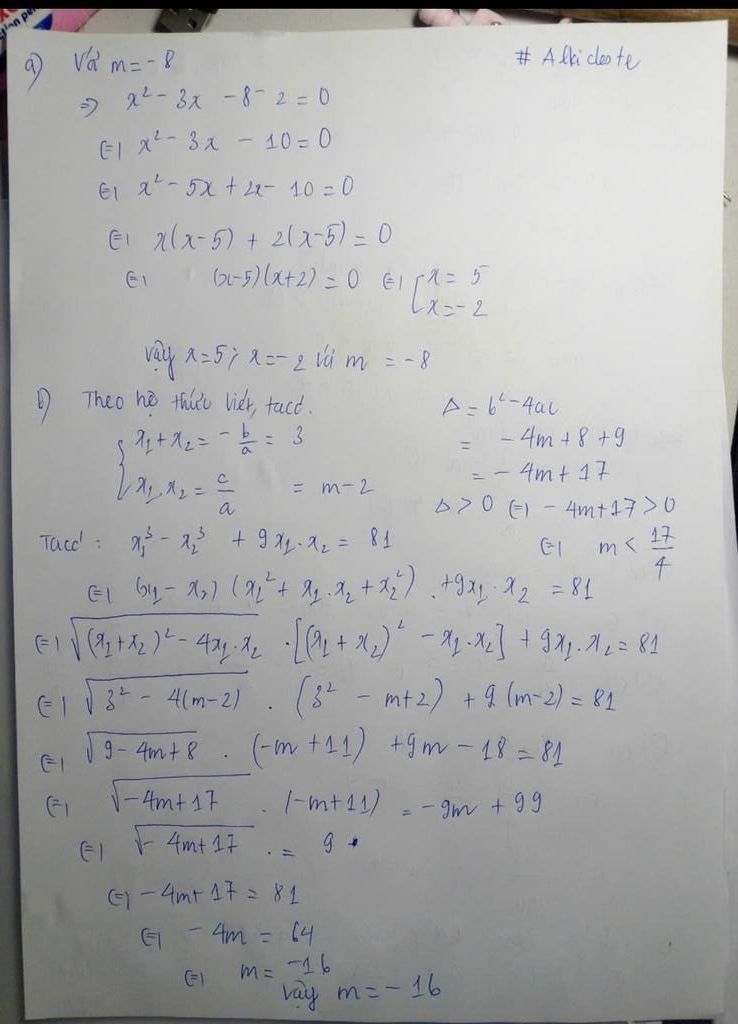 # Alkideste
a) Với m = -8
=> x² - 3x - 8 - 2 = 0
<=> x² - 3x - 10 = 0
<=> x² - 5x + 2x - 10 = 0
<=> x(x-5) + 2(x-5) = 0
<=> (x-5)(x+2) = 0 <=> [x = 5
x = -2
vậy x=5; x=-2 với m = -8
b) Theo hệ thức Viét, ta có.
{ x₁ + x₂ = -b/a = 3
x₁.x₂ = c/a = m-2
Δ = b² - 4ac
= -4m + 8 + 9
= -4m + 17
Δ > 0 <=> -4m + 17 > 0
<=> m < 17/4
Ta có: x₁³ - x₂³ + 9x₁.x₂ = 81
<=> (x₁ - x₂)(x₁² + x₁.x₂ + x₂²) + 9x₁.x₂ = 81
<=> √((x₁+x₂)² - 4x₁.x₂) . [(x₁ + x₂)² - x₁.x₂] + 9x₁.x₂ = 81
<=> √(3² - 4(m-2)) . (3² - m+2) + 9(m-2) = 81
<=> √(9 - 4m + 8) . (-m + 11) + 9m - 18 = 81
<=> √(-4m + 17) . (-m + 11) = -9m + 99
<=> √(-4m + 17) . = 9
<=> -4m + 17 = 81
<=> -4m = 64
<=> m = -16
vậy m = -16